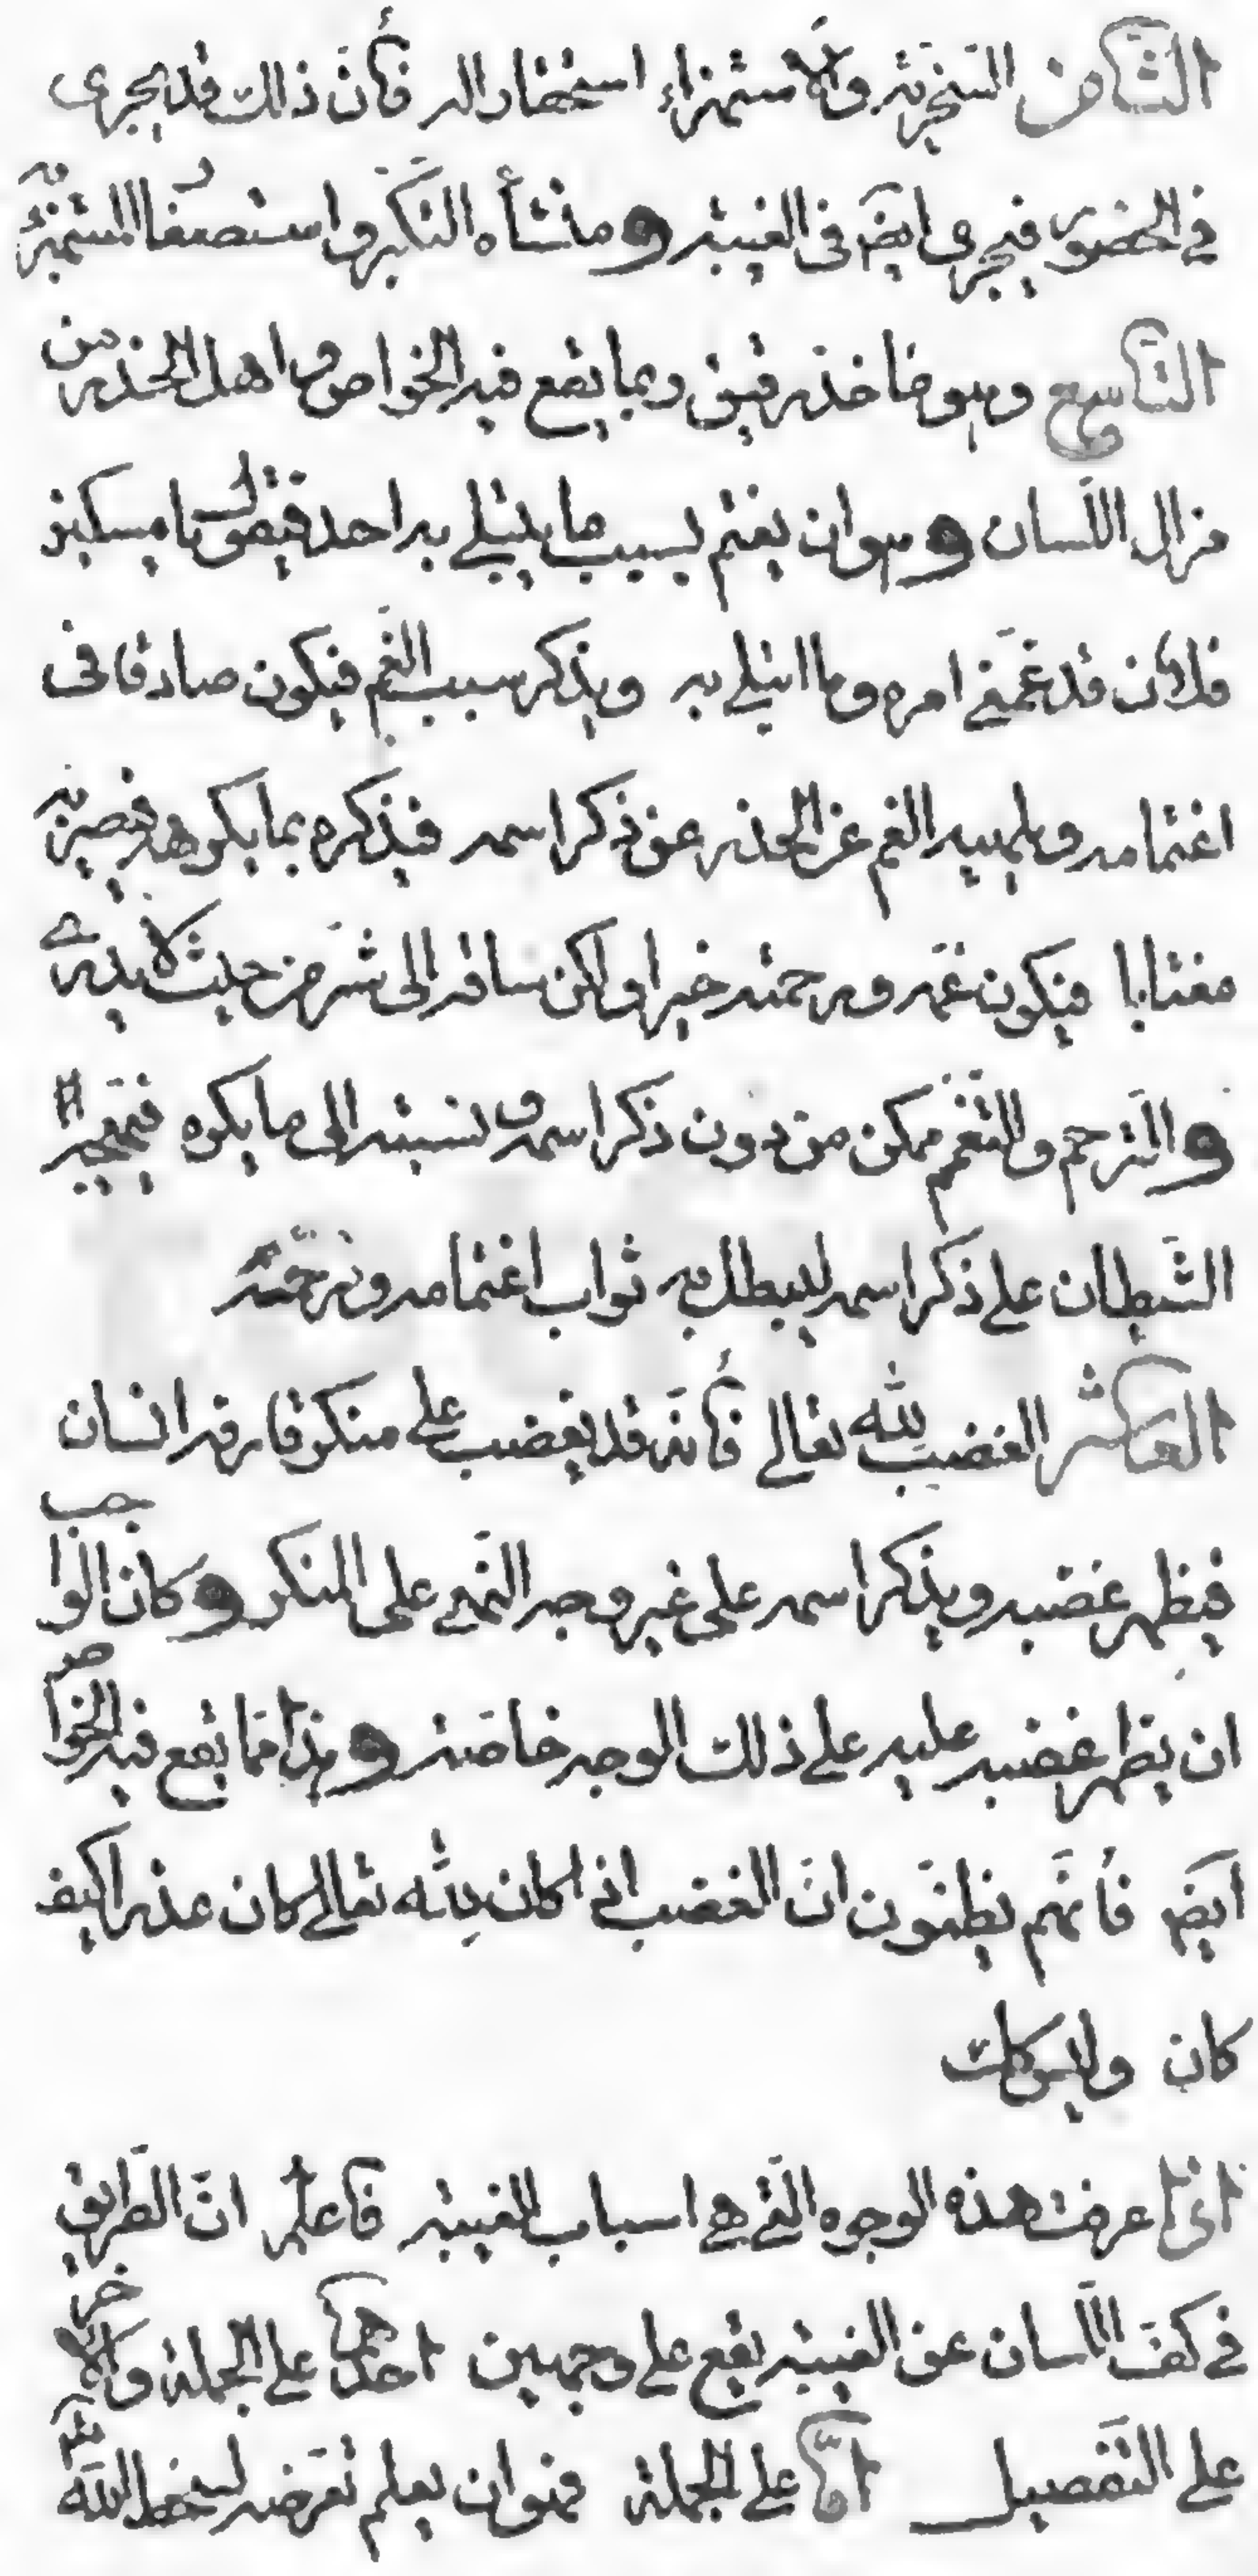 الثامن السخرية والاستهزاء استحقارا له فأن ذلك قد يجرى
في الحضور فيجرى ايضا فى الغيبة ومنشأه التكبر واستصغار المستهزء به
التاسع وهو مأخذ دقيق ربما يقع فيه الخواص واهل الحذر من
مزال اللسان وهو ان يغتم بسبب ما يبتلي به احد فيقول يا مسكين
فلان قد غمني امره وما ابتلي به ويذكر سبب الغم فيكون صادقا فى
اغتمامه ويلهيه الغم عن الحذر عن ذكر اسمه فيذكره بما يكرهه فيصير به
مغتابا فيكون غمه ورحمته خيرا ولكن ساقه الى شر من حيث لا يدرى
والترحم والتغمم ممكن من دون ذكر اسمه ونسبته الى ما يكره فيهيجه
الشيطان على ذكر اسمه ليبطل به ثواب اغتمامه وترحمه
العاشر الغضب لله تعالى فأنه قد يغضب على منكر قارفه انسان
فيظهر غضبه ويذكر اسمه على غير وجه النهي على المنكر وكان الواجب
ان يظهر غضبه عليه على ذلك الوجه خاصة وهذا مما يقع فيه الخواص
ايضا فأنهم يظنون ان الغضب اذا كان لله تعالى كان عذرا كيف
كان وليس كذلك
اذا عرفت هذه الوجوه التي هي اسباب الغيبة فاعلم ان الطريق
في كف اللسان عن الغيبة يقع على وجهين احدهما على الجملة والاخر
على التفصيل اما على الجملة فهو ان يعلم تعرضه لسخط الله